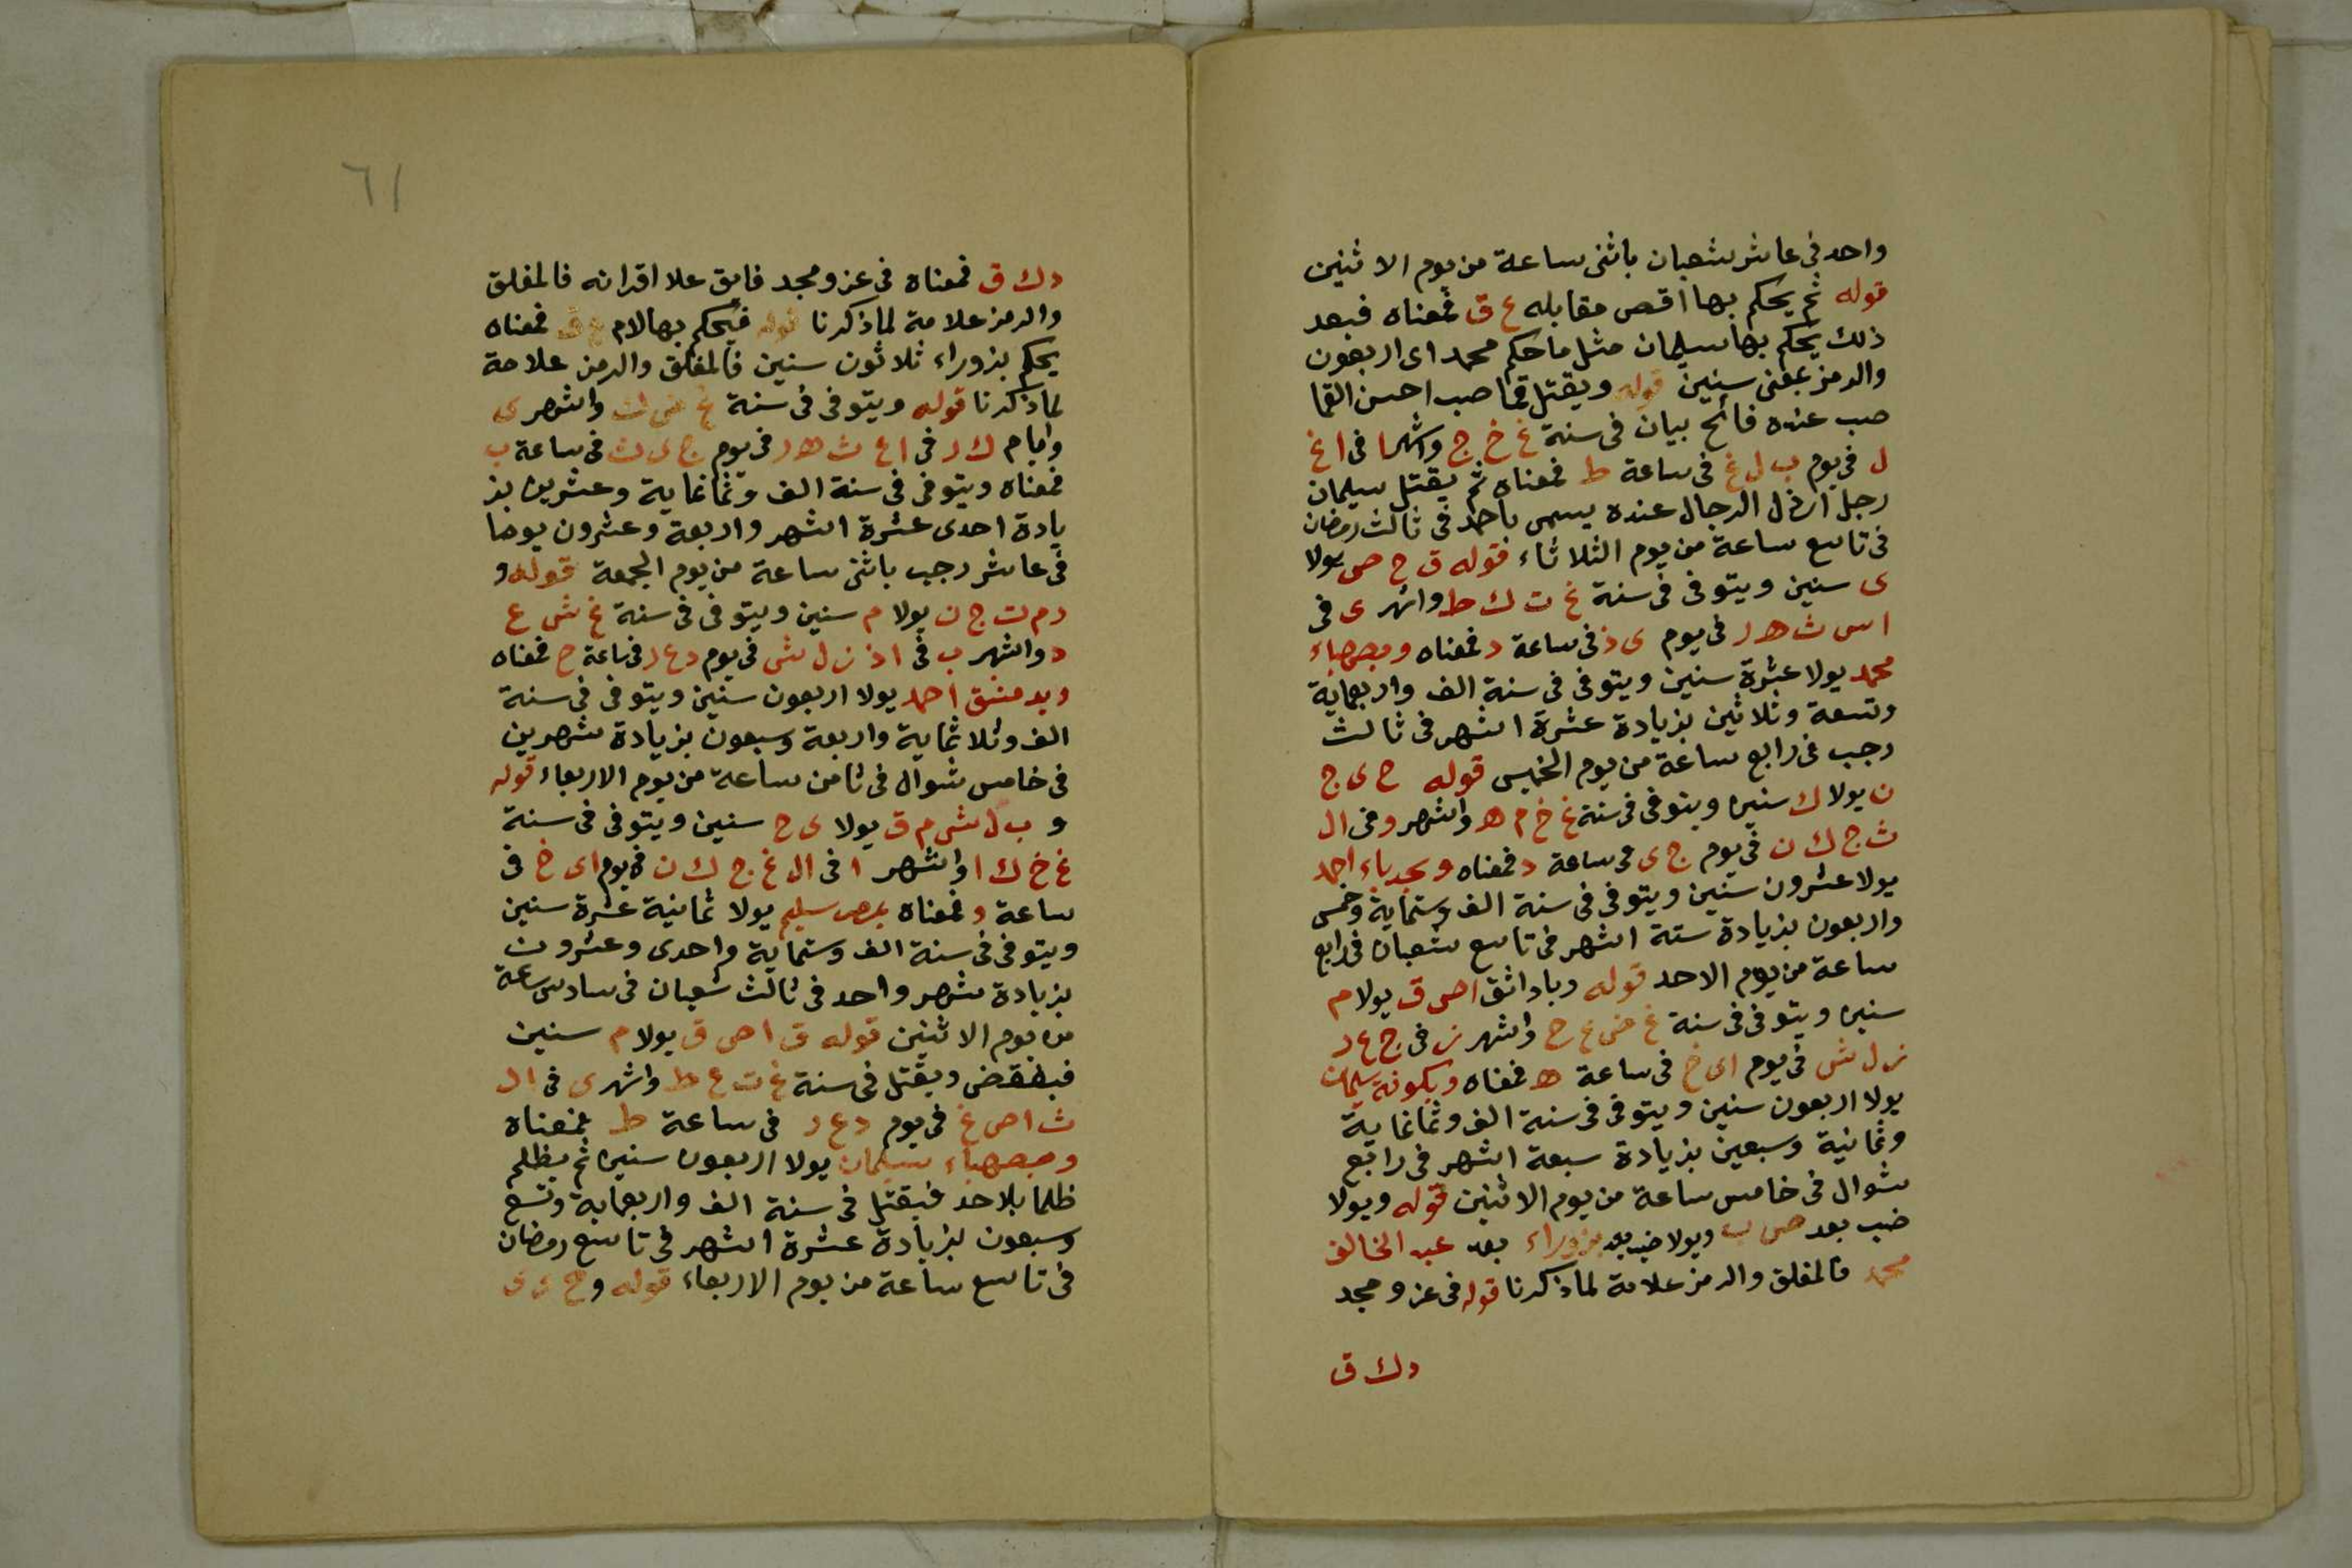 واحد فى عاشر شعبان باثنى ساعة من يوم الاثنين
قوله ثم يحكم بها اقص مقابله ع ق فمعناه فبعد
ذلك يحكم بها سليمان مثل ما حكم محمد اى اربعون
والرمز بمعنى سنين قوله ويقتل قما صب احسن القما
صب عنده فاتح بيان فى سنة غ خ ج واشهرا فى ا غ
ل فى يوم ب ل غ فى ساعة ط فمعناه ثم يقتل سليمان
رجل ارذل الرجال عنده يسمى باحمد فى ثالث رمضان
فى تاسع ساعة من يوم الثلاثاء فقوله ق ح ص يولا
ى سنين ويتوفى فى سنة غ ت ل ط واشهر ى فى
ا س ث ه ر فى يوم ى ذ فى ساعة د فمعناه وبصهباء
محمد يولا عشرة سنين ويتوفى فى سنة الف واربعماية
وتسعة وثلاثين بزيادة عشرة اشهر فى ثالث
رجب فى رابع ساعة من يوم الخميس قوله ح ى ج
ن يولا ك سنين ويتوفى فى سنة غ خ م ه واشهر و فى ا ل
ث ج ك ن فى يوم ج ى فى ساعة د فمعناه وبحدباء احمد
يولا عشرون سنين ويتوفى فى سنة الف وستماية وخمس
واربعون بزيادة ستة اشهر فى تاسع شعبان فى رابع
ساعة من يوم الاحد قوله وباداثق ا ص ق يولا م
سنين ويتوفى فى سنة غ ض ع ح واشهر ز فى ج ع د
ز ل ش فى يوم ا ى خ فى ساعة ه فمعناه وبكونة سليمان
يولا اربعون سنين ويتوفى فى سنة الف وثمانماية
وثمانية وسبعين بزيادة سبعة اشهر فى رابع
شوال فى خامس ساعة من يوم الاثنين قوله ويولا
ضب بعد ص ب ويولا ضب بعد بزوراء بعد عبد الخالق
محمد فالمغلق والرمز علامة لما ذكرنا قوله فى عز ومجد
د ك ق
٦١
د ك ق فمعناه فى عز ومجد فايق علا اقرانه فالمغلق
والرمز علامة لما ذكرنا قوله فيحكم بها لام ع ق فمعناه
يحكم بزوراء ثلاثون سنين فالمغلق والرمز علامة
لما ذكرنا قوله ويتوفى فى سنة غ ض ك واشهر ى
وايام ك د فى ا ع ث ه ر فى يوم ج ى ث فى ساعة ب
فمعناه ويتوفى فى سنة الف وثمانماية وعشرين بز
يادة احدى عشرة اشهر واربعة وعشرون يوما
فى عاشر رجب باثنى ساعة من يوم الجمعة قوله و
د م ت ج ن يولا م سنين ويتوفى فى سنة غ ش ع
د واشهر ب فى ا ذ ز ل ش فى يوم د ع ر فى ساعة ح فمعناه
وبدمشق احمد يولا اربعون سنين ويتوفى فى سنة
الف وثلاثماية واربعة وسبعون بزيادة شهرين
فى خامس شوال فى ثامن ساعة من يوم الاربعاء قوله
و ب ل ش م ق يولا ى ح سنين ويتوفى فى سنة
غ خ ك ا واشهر ا فى ا ل غ ج ك ن فى يوم ا ى خ فى
ساعة و فمعناه بمصر سليم يولا ثمانية عشرة سنين
ويتوفى فى سنة الف وستماية واحدى وعشرون
بزيادة شهر واحد فى ثالث شعبان فى سادس ساعة
من يوم الاثنين قوله ق ا ص ق يولا م سنين
فيغقض ويقتل فى سنة غ ت ع ط واشهر ى فى ا ل
ث ا ص غ فى يوم د ع ر فى ساعة ط فمعناه
وبصهباء سليمان يولا اربعون سنين ثم يظلم
ظلما بلا حد فيقتل فى سنة الف واربعماية وتسع
وسبعون بزيادة عشرة اشهر فى تاسع رمضان
فى تاسع ساعة من يوم الاربعاء قوله و ح ى ى